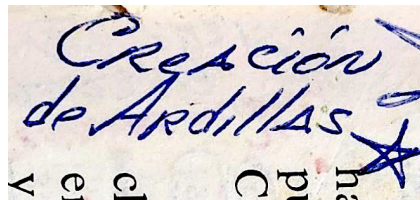 Creación
de Ardillas